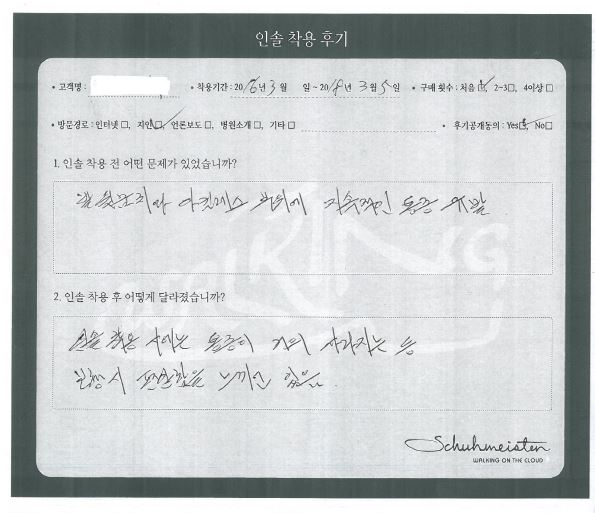 인솔 착용 후기
• 고객명 : • 착용기간 : 20 년 3 월 일 ~ 20 년 3 월 5 일 • 구매 횟수 : 처음 ☑, 2~3□, 4이상 □
• 방문경로 : 인터넷 □, 지인 ☑, 언론보도 □, 병원소개 □, 기타 □ • 후기공개동의 : Yes ☑, No□
1. 인솔 착용 전 어떤 문제가 있었습니까?
아킬레스 부위에 지속적인 통증 유발
WALKING
2. 인솔 착용 후 어떻게 달라졌습니까?
인솔 착용 후에는 통증이 거의 사라지는 등
보행 시 편안함을 느끼고 있음.
Schuhmeister
WALKING ON THE CLOUD